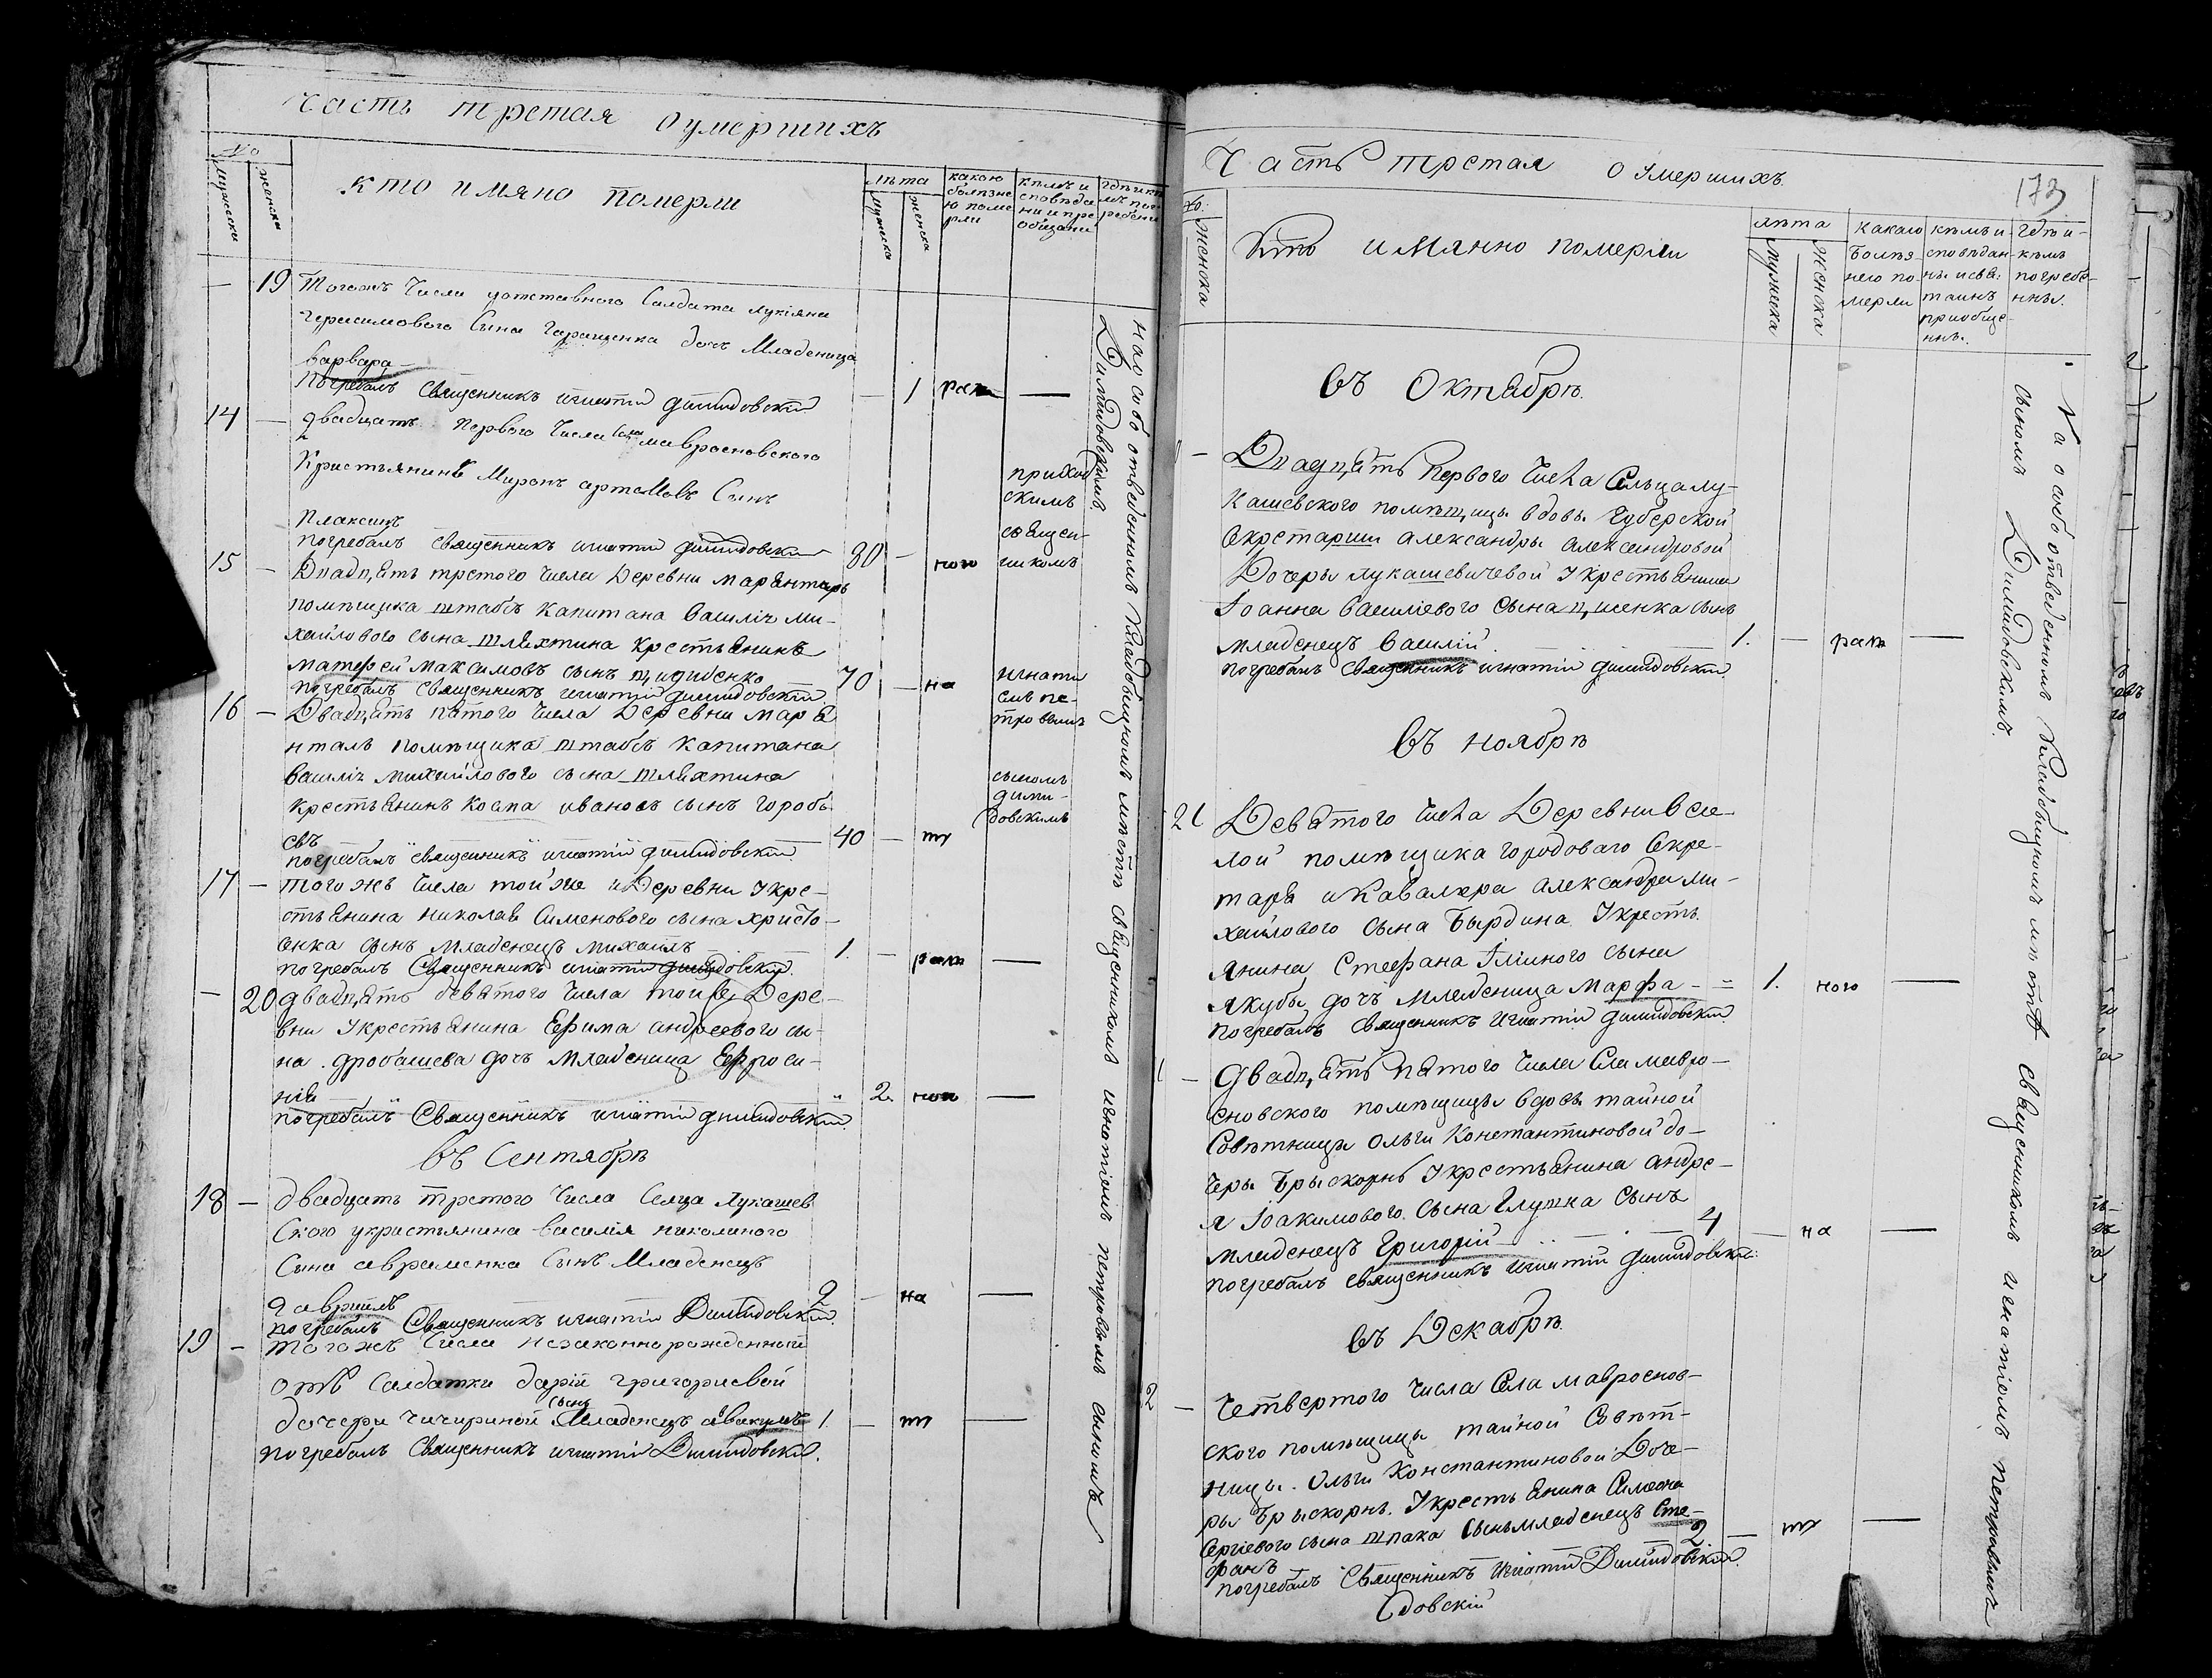 Часть третая оумершихъ
№
мужеска
женска
кто имяно померли
лѣта
мужеска
женска
какою
болѣзне
ю поме
рли
кѣмъ и
сповѣда
ни и пре
общани
гдѣ и кѣ
мъ пог
ребени
19 Тогожъ Числа уотставного Салдата лукіяна
герасимового Сына Геращенка дочь Младеница
варвара
погребалъ Священникъ игнатій димидовскій
1
14 двадцать Первого Числа Села мавроеновского
Кристьянинъ Миронъ артемовъ Сынъ
Плаксинъ
погребалъ священникъ игнатій димидовскій
80
15 Двадцять третого числа Деревни Марянталь
помѣщика штабсъ капитана василія ми-
хайлового сына шляхтина крестьянинъ
матфей максимовъ сынъ
погребалъ священникъ игнатій димидовскій
70 на
16 Двадцять пятого числа Деревни Маря
нталь помѣщика штабсъ капитана
василія михайлового сына шляхтина
крестьянинъ косма ивановъ сынъ горобь
евъ
погребалъ священникъ игнатій димидовскій
40
приход
скимъ
священ-
никомъ
игнати
емъ пе-
тровымъ
сыномъ
дими-
довскимъ
17 того жъ числа той же Деревни Укре-
стьянина николая Сименового сына христо-
енка сынъ младенецъ михаилъ
погребалъ Священникъ игнатій димидовскій
1.
20 двадцять девятого числа той же Дере-
вни Укрестьянина Ефима андреевого сы-
на дробашева дочь младеница Ефроси-
нія
погребалъ Священникъ игнатій димидовскій
2.
въ Сентябрѣ
18 двадцать третого Числа Селца Лукашев
Ского укристьянина василія николиного
Сына авраменка Сынъ Младенецъ
гавриилъ
погребалъ Священникъ игнатій Димидовскій
2 на
19 тогожъ Числа незаконнорожденный
отъ Салдатки дарій григориевой
дочери Чичириной сынъ Младенецъ авакумъ
погребалъ Священникъ игнатій Димидовскій.
1.
на особо отведенномъ кладбищномъ мѣстѣ священникомъ игнатіемъ петровымъ сыномъ
Димидовскимъ
Часть третая о умершихъ
173
№:
женска
Кто имянно померли
лѣта
мужеска
женска
какою
болѣз-
нею по-
мерли
кѣмъ и
сповѣдан-
ны и свя:
таинъ
приобще-
нны.
Гдѣ и-
кѣмъ
погребе-
нны.
въ Октябрѣ
Двадцять первого числа Сельца лу-
кашевского помѣщицы вдовы Губерской
Секретарши александры александровой
Дочеры лукашевичевой Укрестьянина
Іоанна василіевого сына сынъ
младенецъ василій
погребалъ священникъ игнатій димидовскій
1.
въ ноябрѣ
21 Девятого числа Деревни весе-
лой помѣщика городоваго Секре-
таря и Кавалера александра ми-
хайлового сына Бырдина Укресть-
янина Стефана Іліиного сына
якубы дочь младеница Марфа
погребалъ священникъ игнатій димидовскій
1.
двадцять пятого числа Села мавро-
еновского помѣщицы вдовы тайной
Совѣтницы Ольги Константиновой до-
черы Брыскорнъ Укрестьянина андре-
я Іоакимового сына глушка сынъ
младенецъ Григорій
погребалъ священникъ игнатій димидовскій:
4 на
въ Декабрѣ
2 Четвертого числа Села мавроенов-
ского помѣщицы тайной Совѣт-
ницы. Ольги Константиновой Доче-
ры Брыскорнъ. Укрестьянина Симеона
Сергіевого сына шпака сынъ младенецъ Сте-
фанъ
погребалъ Священникъ игнатій Димидовскій.
довскій
2
На особо отведенномъ кладбищномъ мѣстѣ священникомъ игнатіемъ петровымъ
сыномъ Димидовскимъ